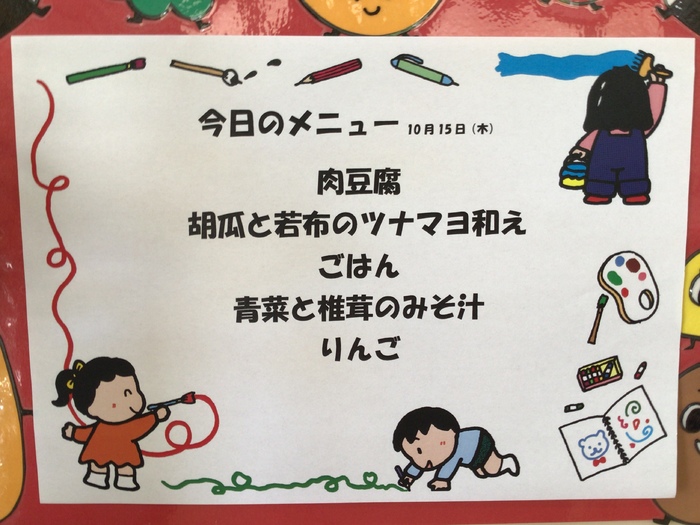 今日のメニュー 10月15日(木)
肉豆腐
胡瓜と若布のツナマヨ和え
ごはん
青菜と椎茸のみそ汁
りんご